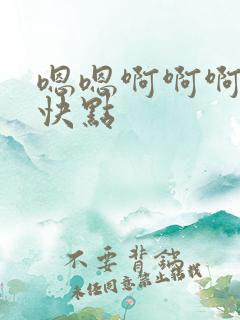 嗯嗯啊啊啊
快點
不要背鍋
未经同意禁止转载